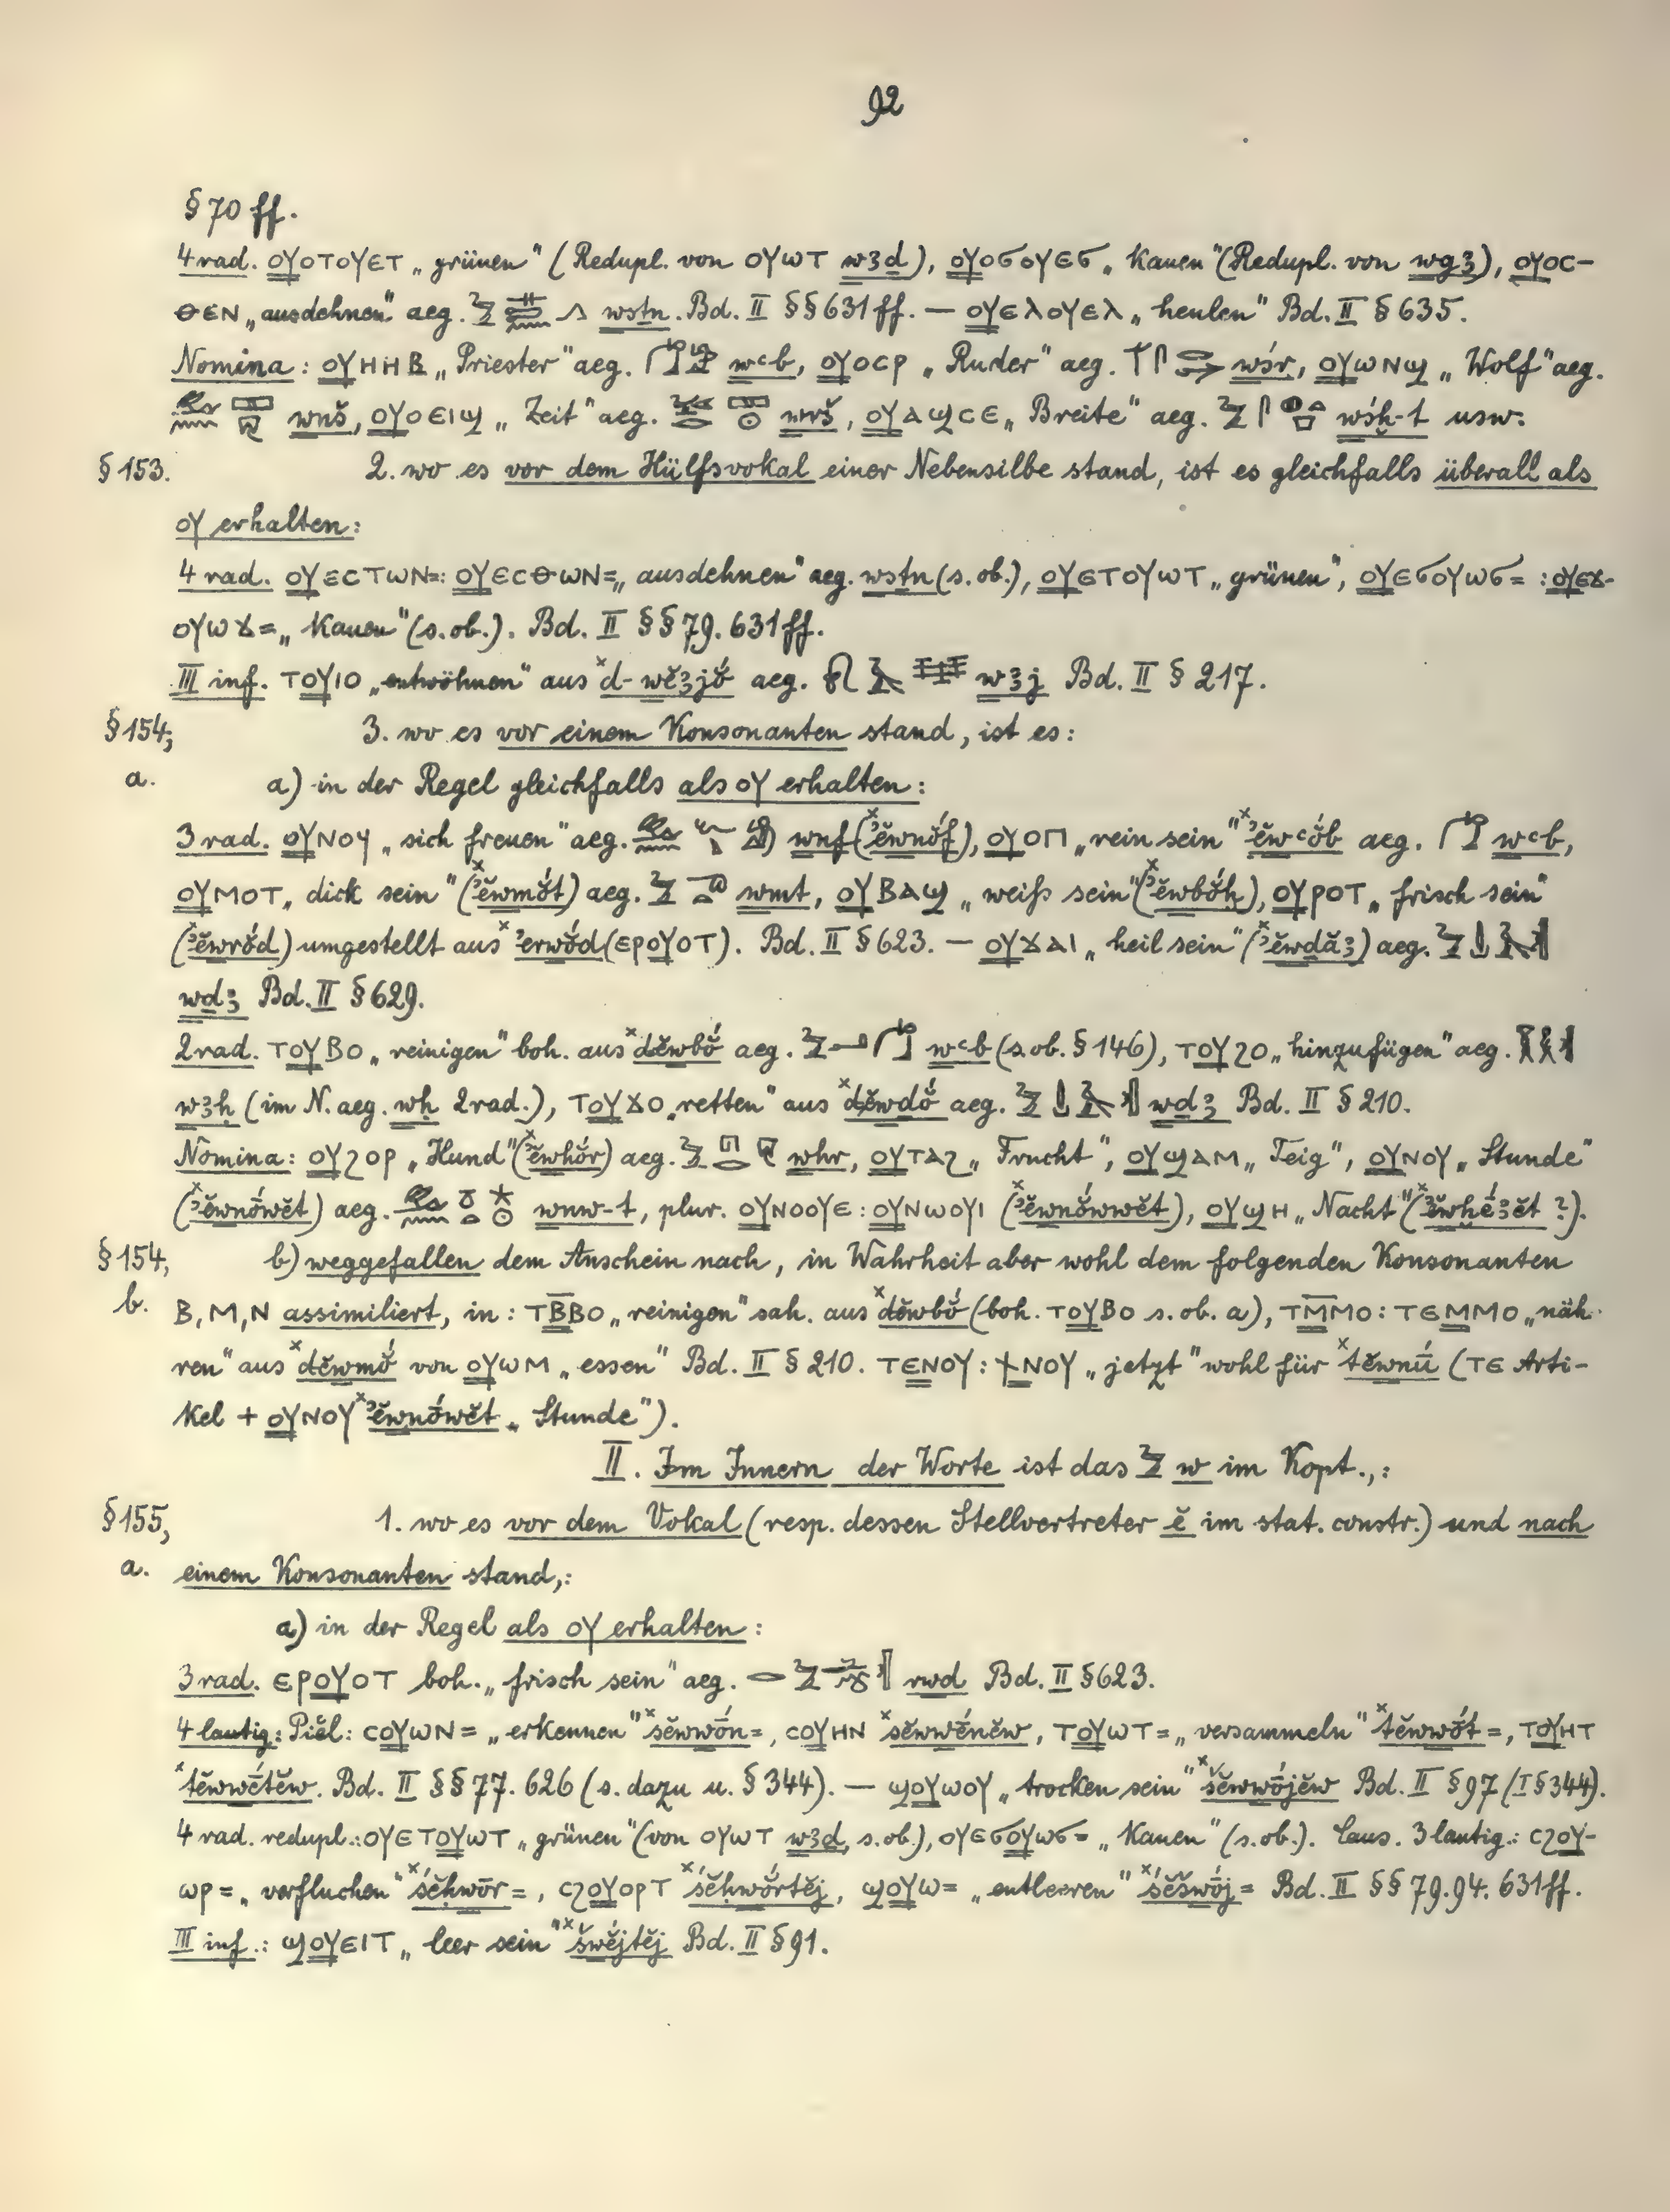 92
§ 70 ff.
4 rad. ⲟⲩⲟⲧⲟⲩⲉⲧ „grünen“ (Redupl. von ⲟⲩⲱⲧ wꜣd), ⲟⲩⲟϭⲟⲩⲉϭ „kauen“ (Redupl. von wgꜣ), ⲟⲩⲟⲥ-
ⲑⲉⲛ „ausdehnen“ aeg. wstn. Bd. II §§ 631 ff. — ⲟⲩⲉⲗⲟⲩⲉⲗ „heulen“ Bd. II § 635.
Nomina: ⲟⲩⲏⲏⲃ „Priester“ aeg. wꜥb, ⲟⲩⲟⲥⲣ „Ruder“ aeg. wśr, ⲟⲩⲱⲛϣ „Wolf“ aeg.
wnš, ⲟⲩⲟⲉⲓϣ „Zeit“ aeg. wrš, ⲟⲩⲁϣⲥⲉ „Breite“ aeg. wśḫ-t usw.
§ 153. 2. wo es vor dem Hülfsvokal einer Nebensilbe stand, ist es gleichfalls überall als
ⲟⲩ erhalten:
4 rad. ⲟⲩⲉⲥⲧⲱⲛ=: ⲟⲩⲉⲥⲑⲱⲛ= „ausdehnen“ aeg. wstn (s. ob.), ⲟⲩⲉⲧⲟⲩⲱⲧ „grünen“, ⲟⲩⲉϭⲟⲩⲱϭ= : ⲟⲩⲉϫ-
ⲟⲩⲱϫ= „kauen“ (s. ob.). Bd. II §§ 79. 631 ff.
III inf. ⲧⲟⲩⲓⲟ „entwöhnen“ aus ˣd-wĕꜣjŏ́ aeg. wꜣj Bd. II § 217.
§ 154, 3. wo es vor einem Konsonanten stand, ist es:
a. a) in der Regel gleichfalls als ⲟⲩ erhalten:
3 rad. ⲟⲩⲛⲟϥ „sich freuen“ aeg. wnf (ˣʾĕwnŏ́f), ⲟⲩⲟⲡ „rein sein“ ˣʾĕwꜥŏ́b aeg. wꜥb,
ⲟⲩⲙⲟⲧ „dick sein“ (ˣʾĕwmŏ́t) aeg. wmt, ⲟⲩⲃⲁϣ „weiß sein“ (ˣʾĕwbŏ́ḫ), ⲟⲩⲣⲟⲧ „frisch sein“
(ˣʾĕwrŏ́d) umgestellt aus ˣʾerwŏ́d (ⲉⲣⲟⲩⲟⲧ). Bd. II § 623. — ⲟⲩϫⲁⲓ „heil sein“ (ˣʾĕwdăꜣ) aeg.
wdꜣ Bd. II § 629.
2 rad. ⲧⲟⲩⲃⲟ „reinigen“ boh. aus ˣdĕwbŏ́ aeg. wꜥb (s. ob. § 146), ⲧⲟⲩϩⲟ „hinzufügen“ aeg.
wꜣḥ (im N. aeg. wḥ 2 rad.), ⲧⲟⲩϫⲟ „retten“ aus ˣdĕwdŏ́ aeg. wdꜣ Bd. II § 210.
Nomina: ⲟⲩϩⲟⲣ „Hund“ (ˣʾĕwhŏ́r) aeg. whr, ⲟⲩⲧⲁϩ „Frucht“, ⲟⲩϣⲁⲙ „Teig“, ⲟⲩⲛⲟⲩ „Stunde“
(ˣʾĕwnṓwĕt) aeg. wnw-t, plur. ⲟⲩⲛⲟⲟⲩⲉ : ⲟⲩⲛⲱⲟⲩⲓ (ˣʾĕwnŏ́wwĕt), ⲟⲩϣⲏ „Nacht“ (ˣʾĕwḫḗꜣĕt ?).
§ 154, b) weggefallen dem Anschein nach, in Wahrheit aber wohl dem folgenden Konsonanten
b. ⲃ, ⲙ, ⲛ assimiliert, in: ⲧⲃ̅ⲃⲟ „reinigen“ sah. aus ˣdĕwbŏ́ (boh. ⲧⲟⲩⲃⲟ s. ob. a), ⲧⲙ̅ⲙⲟ : ⲧⲉⲙⲙⲟ „näh-
ren“ aus ˣdĕwmŏ́ von ⲟⲩⲱⲙ „essen“ Bd. II § 210. ⲧⲉⲛⲟⲩ : ϯⲛⲟⲩ „jetzt“ wohl für ˣtĕwnū́ (ⲧⲉ Arti-
kel + ⲟⲩⲛⲟⲩ ˣʾĕwnṓwĕt „Stunde“).
II. Im Innern der Worte ist das w im Kopt.,:
§ 155, 1. wo es vor dem Vokal (resp. dessen Stellvertreter ĕ im stat. constr.) und nach
a. einem Konsonanten stand,:
a) in der Regel als ⲟⲩ erhalten:
3 rad. ⲉⲣⲟⲩⲟⲧ boh. „frisch sein“ aeg. rwd Bd. II § 623.
4 lautig: Piĕl: ⲥⲟⲩⲱⲛ= „erkennen“ ˣsĕwwṓn=, ⲥⲟⲩⲏⲛ ˣsĕwwḗnĕw, ⲧⲟⲩⲱⲧ= „versammeln“ ˣtĕwwṓt=, ⲧⲟⲩⲏⲧ
ˣtĕwwḗtĕw. Bd. II §§ 77. 626 (s. dazu u. § 344). — ϣⲟⲩⲱⲟⲩ „trocken sein“ ˣšĕwwṓjĕw Bd. II § 97 (I § 344).
4 rad. redupl.: ⲟⲩⲉⲧⲟⲩⲱⲧ „grünen“ (von ⲟⲩⲱⲧ wꜣd, s. ob.), ⲟⲩⲉϭⲟⲩⲱϭ= „kauen“ (s. ob.). Caus. 3 lautig.: ⲥϩⲟⲩ-
ⲱⲣ= „verfluchen“ ˣśĕhwṓr=, ⲥϩⲟⲩⲟⲣⲧ ˣśĕhwŏ́rtĕj, ϣⲟⲩⲱ= „entleeren“ ˣśĕšwṓj= Bd. II §§ 79. 94. 631 ff.
III inf.: ϣⲟⲩⲉⲓⲧ „leer sein“ ˣšwĕ́jtĕj Bd. II § 91.